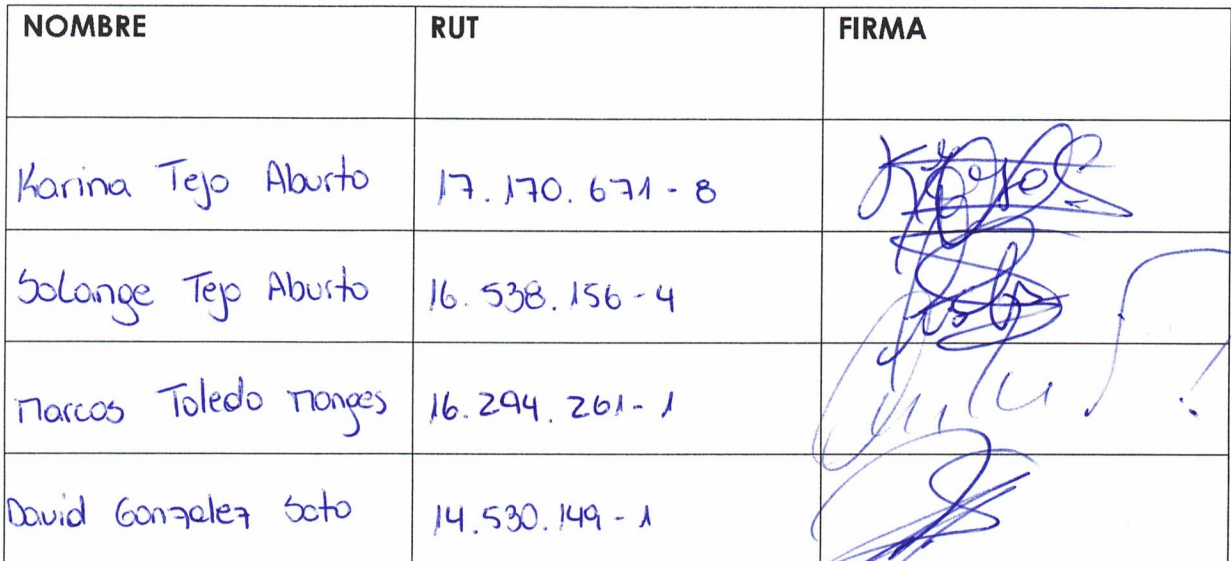 NOMBRE RUT FIRMA
Karina Tejo Aburto 17.170.671-8
Solange Tejo Aburto 16.538.156-4
Marcos Toledo Monges 16.294.261-1
David Gonzalez Soto 14.530.149-1